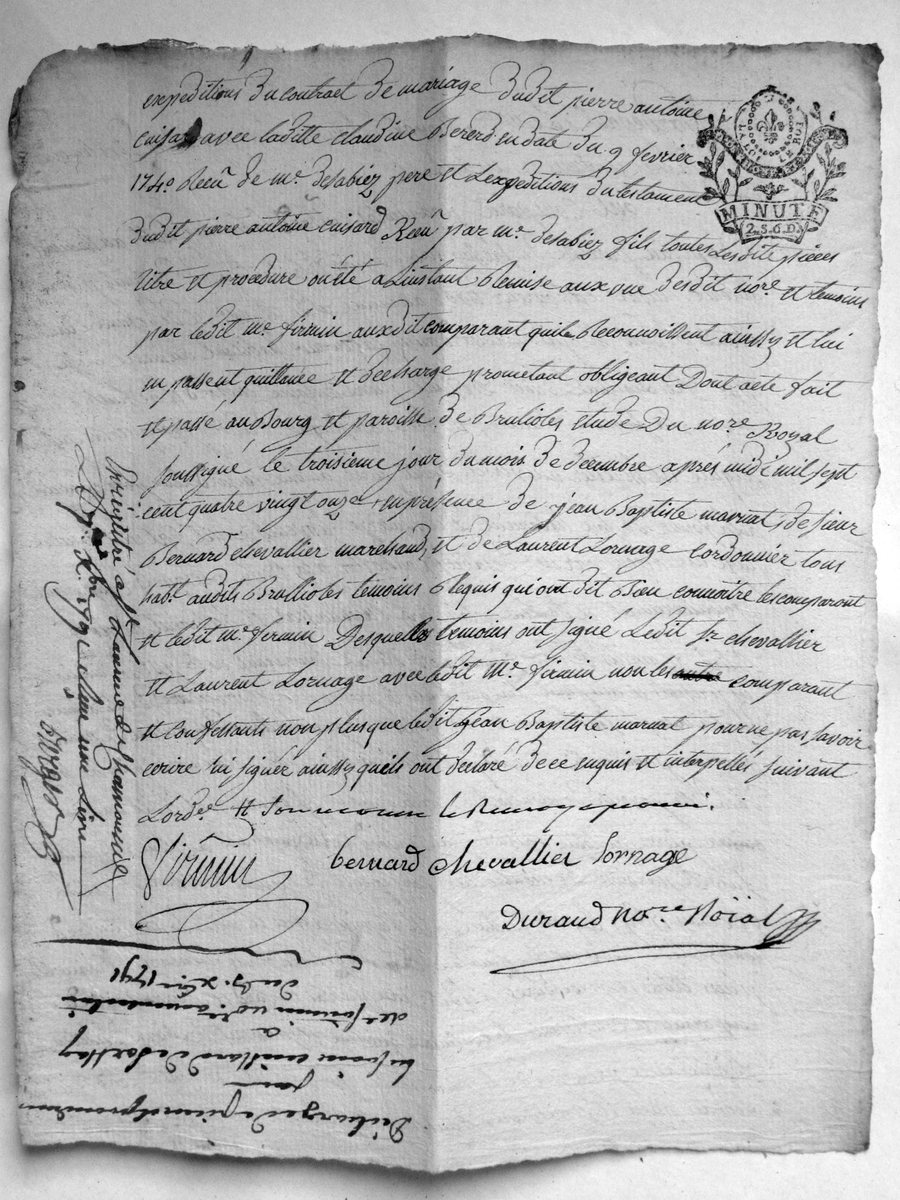 expeditions du contract de mariage dudit pierre antoine
cuisard avec laditte claudine Bererd en date du 9 fevrier
1740 Receu de mr. desabiez pere et Lexpeditions du testament
dudit pierre antoine cuisard Receu par mr. desabiez fils toutes Lesdite pieces
titre et procedure on été a Linstant Remise aux vue desdit nore. et temoins
par ledit mr. firmin auxdit comparant quile Reconnoissent ainssy et lui
en passent quittance et decharge prometant obligeant Dont acte fait
et passé au Bourg et paroisse de Brullioles etude Du nore. Royal
soussigné le troisieme jour du mois de decembre aprés midi mil sept
cent quatre vingt onze en présence de jean Baptiste marnat, de sieur
Bernard chevallier marchand, et de Laurent Lornage cordonnier tous
habt. audits Brullioles temoins Requis qui ont dit Bien connoitre les comparant
et ledit mr. firmin Desquelles temoins ont signé Ledit sr. chevallier
et Laurent Lornage avec ledit mr. firmin non les comparant
et confessants non plus que ledit jean Baptiste marnat pour ne pas savoir
ecrire ni signer ainssy quils ont declaré de ce enquis et interpellés suivant
Lordce. et
firmin
bernard chevallier lornage
Durand Nore. Roïal
LA LOI LE ROI
MINUTE
2.S.6.D.
Enregistré a
1791
une Livre
Decharge de pieces
par
a
firmin
1791